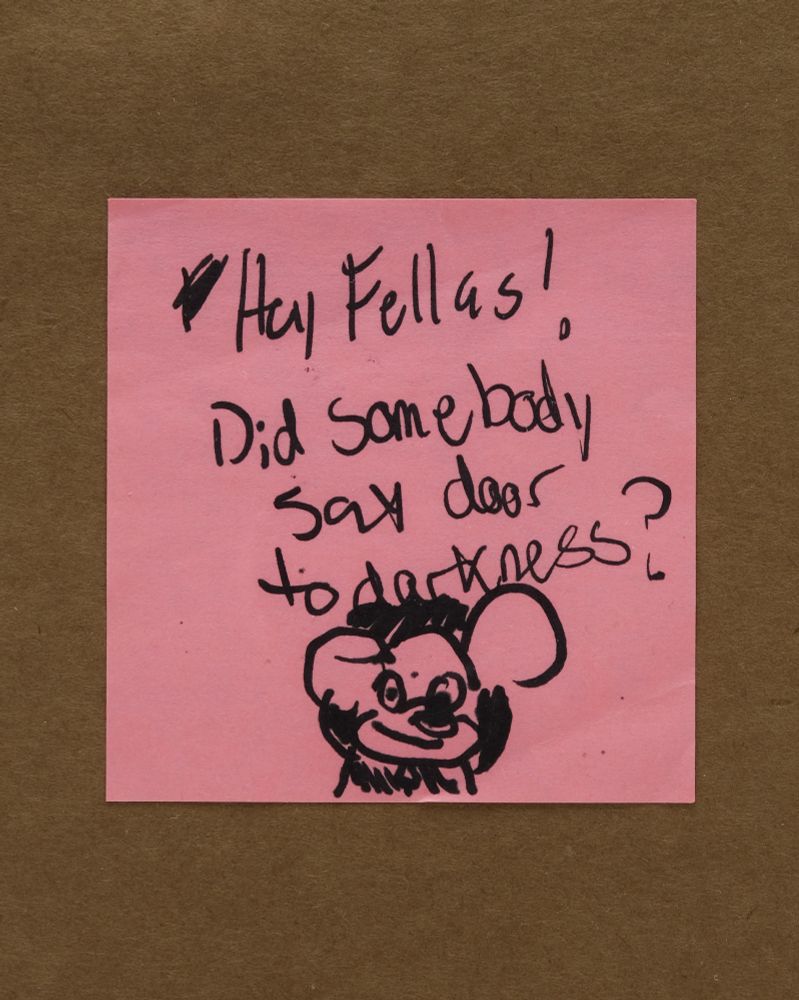 Hey Fellas!
Did somebody
say door
to darkness?